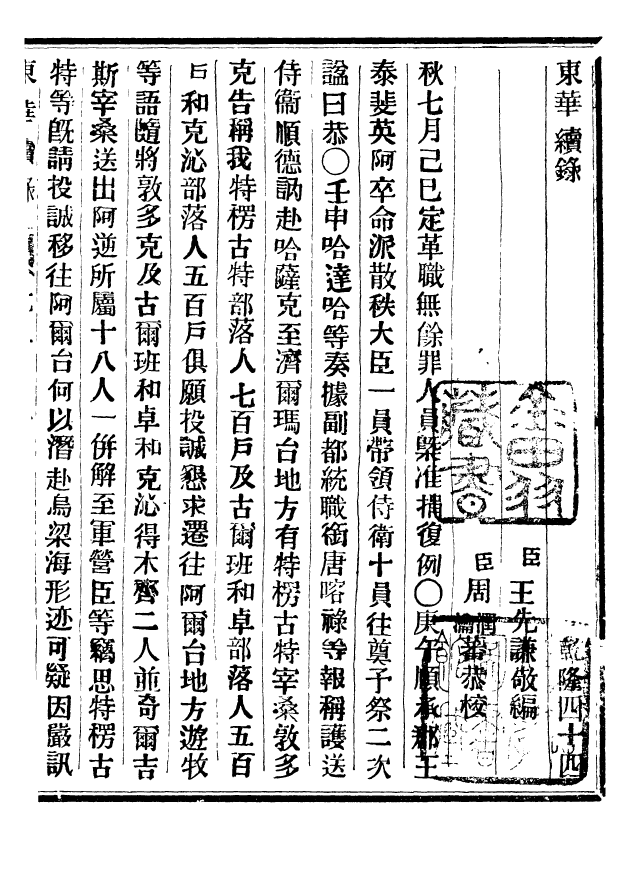 東華續錄　乾隆四十四
臣王先謙敬編
臣周潤蕃瀹蕃恭校
秋七月己巳定革職無餘罪人員槩准捐復例〇庚午順承郡王
泰斐英阿卒命派散秩大臣一員帶領侍衛十員往奠予祭二次
諡曰恭〇壬申哈達哈等奏據副都統職銜唐喀祿等報稱護送
侍衞順德訥赴哈薩克至濟爾瑪台地方有特楞古特宰桑敦多
克告稱我特楞古特部落人七百戶及古爾班和卓部落人五百
戶和克沁部落人五百戶俱願投誠懇求遷往阿爾台地方遊牧
等語隨將敦多克及古爾班和卓和克沁得木齊二人並奇爾吉
斯宰桑送出阿逆所屬十八人一併解至軍營臣等竊思特楞古
特等旣請投誠移往阿爾台何以潛赴烏梁海形迹可疑因嚴訊
東華續錄